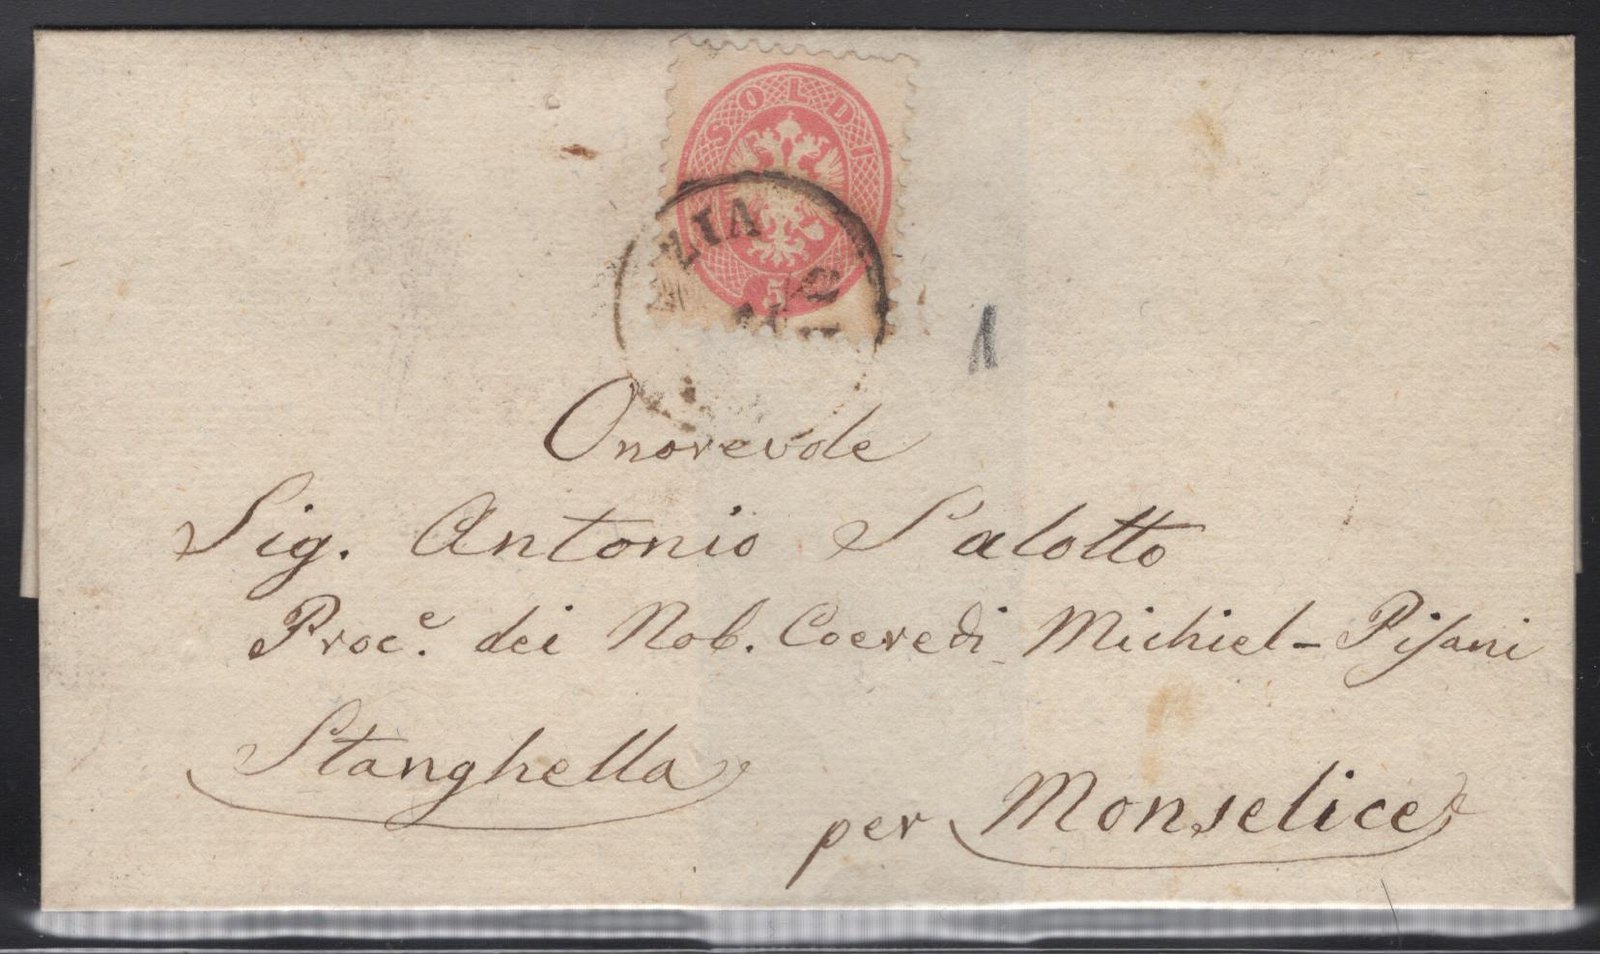 SOLDI
5
ZIA
2
1
Onorevole
Sig. Antonio Salotto
Proc.e dei Nob. Coeredi Michiel-Pisani
Stanghella
per Monselice